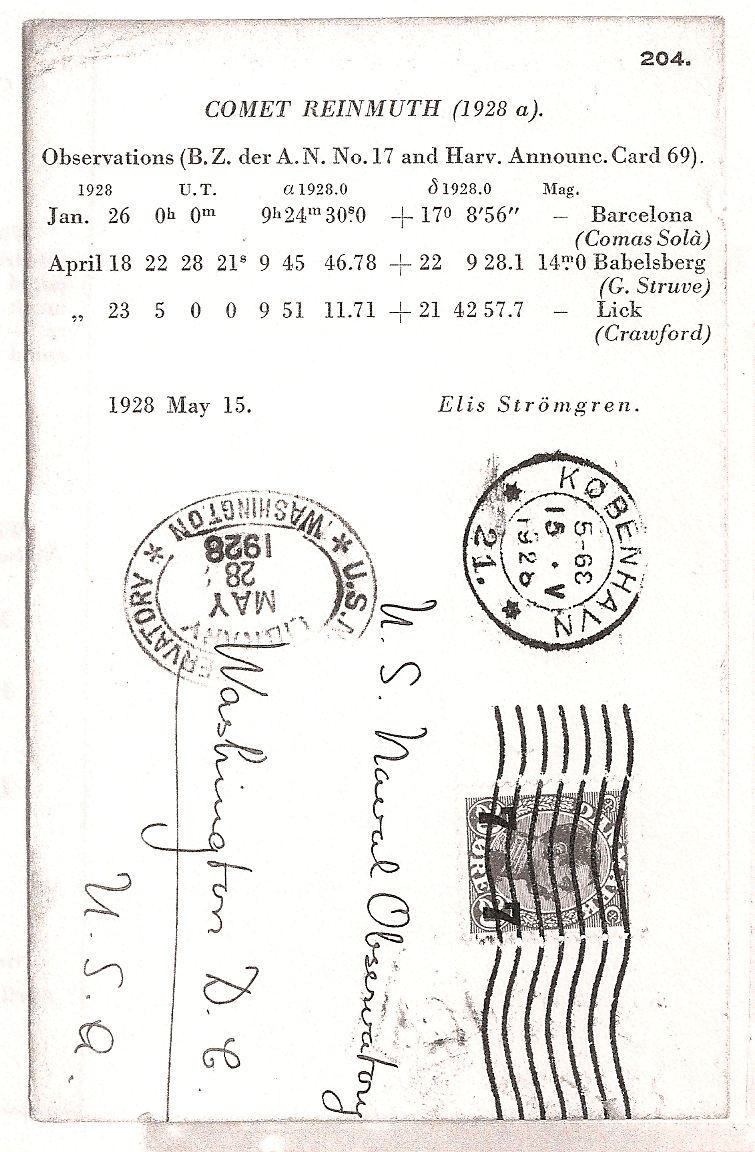 204.
COMET REINMUTH (1928 a).
Observations (B.Z. der A.N. No. 17 and Harv. Announc. Card 69).
1928 U.T. α 1928.0 δ 1928.0 Mag.
Jan. 26 0ʰ 0ᵐ 9ʰ24ᵐ30ˢ.0 +17⁰ 8′56″ – Barcelona
(Comas Solà)
April 18 22 28 21ˢ 9 45 46.78 +22 9 28.1 14ᵐ.0 Babelsberg
(G. Struve)
„ 23 5 0 0 9 51 11.71 +21 42 57.7 – Lick
(Crawford)
1928 May 15. Elis Strömgren.
KØBENHAVN
15 . V
1928
21.
U.S.N
ERVATORY * WASHINGTON *
MAY
28
1928
7 7
U. S. Naval Observatory
Washington D. C.
U. S. A.